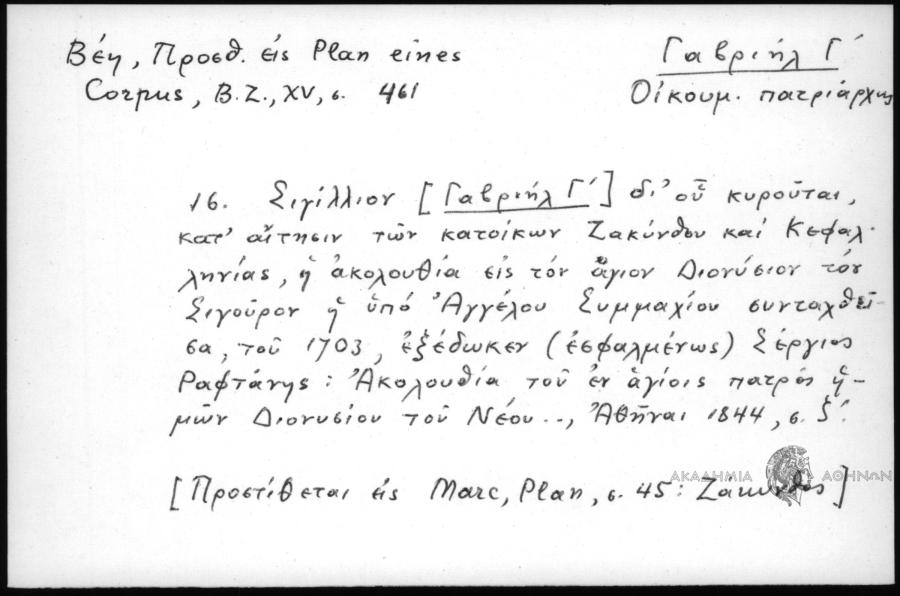 Βέη, Προσθ. εἰς Plan eines
Corpus, B.Z., XV, σ. 461
Γαβριήλ Γ΄
Οἰκουμ. πατριάρχης
16. Σιγίλλιον [Γαβριήλ Γ΄] δι' οὗ κυροῦται,
κατ' αἴτησιν τῶν κατοίκων Ζακύνθου καί Κεφαλ-
ληνίας, ἡ ἀκολουθία εἰς τόν ἅγιον Διονύσιον τόν
Σιγοῦρον ἡ ὑπό Ἀγγέλου Συμμαχίου συνταχθεῖ-
σα, τοῦ 1703, ἐξέδωκεν (ἐσφαλμένως) Σέργιος
Ραφτάνης: Ἀκολουθία τοῦ ἐν ἁγίοις πατρός ἡ-
μῶν Διονυσίου τοῦ Νέου.., Ἀθῆναι 1844, σ. ξ΄.
[Προστίθεται εἰς Marc, Plan, σ. 45: Ζάκυνθος]
ΑΚΑΔΗΜΙΑ ΑΘΗΝΩΝ